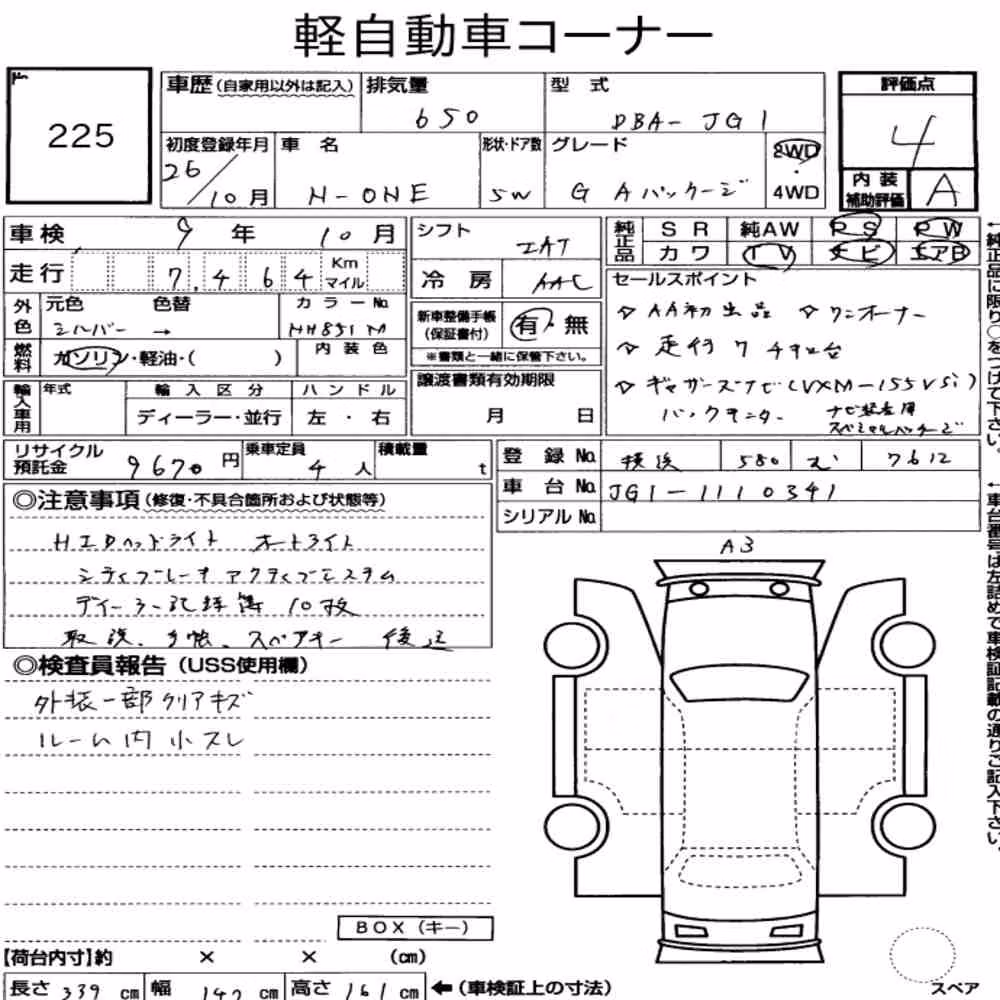 軽自動車コーナー
225
車歴(自家用以外は記入) 排気量 型式 評価点
650 DBA-JG1 4
初度登録年月 車名 形状・ドア数 グレード 2WD・4WD
26/10月 N-ONE 5W G Aパッケージ
内装補助評価 A
車検 9年 10月 シフト IAT 純正品 SR 純AW PS PW
カワ TV ナビ エアB
走行 7,464 Km マイル 冷房 AAC
セールスポイント
外色 元色 色替 カラーNo.
シルバー → NH851M
新車整備手帳(保証書付) 有・無
※書類と一緒に保管下さい。
☆AA初出品 ☆ワンオーナー
☆走行7千キロ台
☆ギャザーズナビ(VXM-155VSi)
バックモニター ナビ装着用スペシャルパッケージ
燃料 ガソリン・軽油・( ) 内装色
輸入車用 年式 輸入区分 ハンドル
ディーラー・並行 左・右
譲渡書類有効期限
月 日
リサイクル預託金 9670円 乗車定員 4人 積載量 t
登録No. 横浜 580 む 7612
車台No. JG1-1110341
シリアルNo.
◎注意事項(修復・不具合箇所および状態等)
HIDヘッドライト オートライト
シティブレーキアクティブシステム
ディーラー記録簿10枚
取説、手帳、スペアキー 後送
◎検査員報告(USS使用欄)
外装一部クリアキズ
ルーム内小スレ
A3
BOX(キー)
【荷台内寸】約 × × (cm)
長さ 339 cm 幅 147 cm 高さ 161 cm ←(車検証上の寸法)
スペア
←純正品に限り○をつけて下さい。
←車台番号は左詰めで車検証記載の通りご記入下さい。